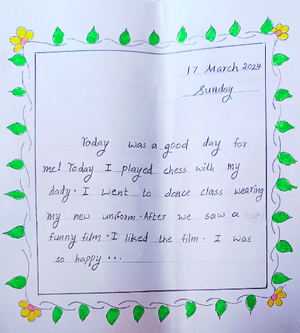 17 March 2024
Sunday
Today was a good day for
me! Today I played chess with my
dady. I went to dance class wearing
my new uniform. After we saw a
funny film. I liked the film. I was
so happy...